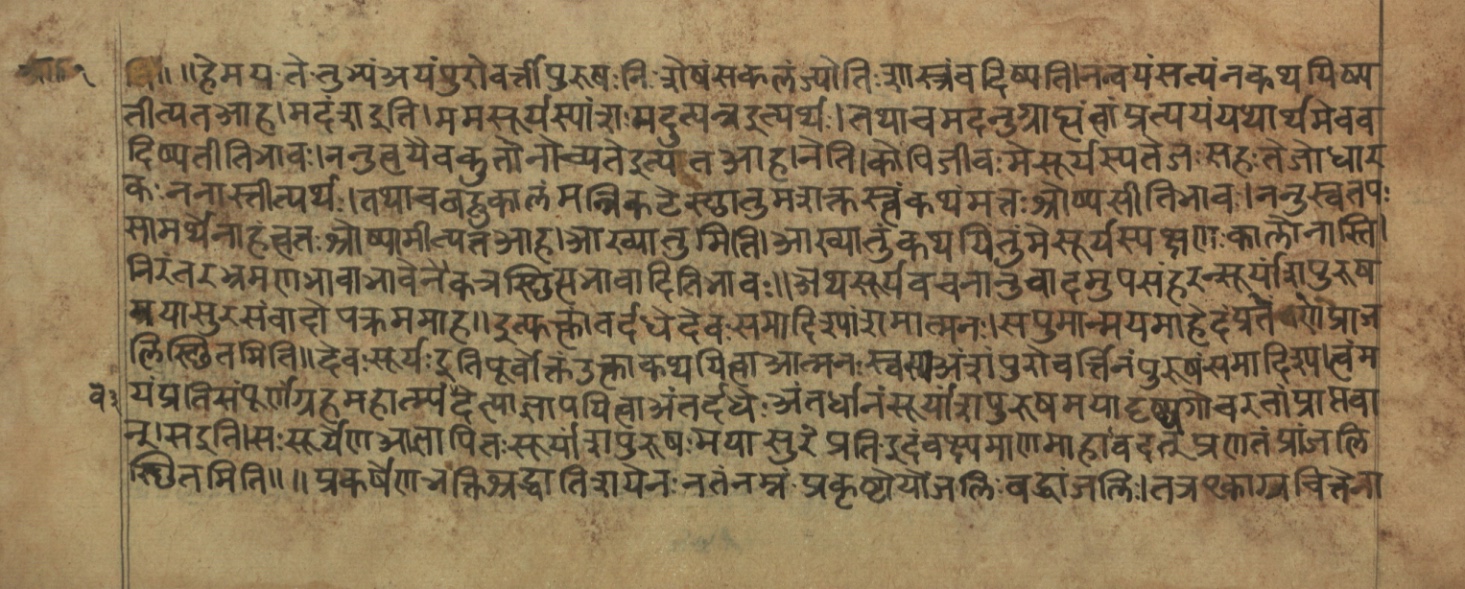 ॥॥हेमय ते तुभ्यंअयंपुरोवर्त्तीपुरुषः निःशेषंसकलंज्योतिःशास्त्रंवदिष्यति।नत्वयंसत्यंनकथयिष्य
तीत्यतआह।मदंशइति।ममसूर्यस्यांशःमदुत्पन्नइत्यर्थः।तथाचमदनुग्राह्यंत्वांप्रत्ययंयथार्थमेवव
दिष्यतीतिभावः।ननुत्वयैवकुतोनोच्यतेइत्यतआह।नेति।कोपिजीवःमेसूर्यस्यतेजःसहःतेजोधार
कःननास्तीत्यर्थः।तथाचबहुकालंमन्निकटेस्थातुमशक्तस्त्वंकथंमत्तःश्रोष्यसीतिभावः।ननुस्वतपः
सामर्थेनाहंत्वत्तःश्रोष्यामीत्यतआह।आख्यातुमिति।आख्यातुंकथयितुंमेसूर्यस्यक्षणःकालोनास्ति।
निरंतरभ्रमणभावाभावेनैकत्रस्थित्यभावादितिभावः॥अथसूर्यवचनानुवादमुपसंहरन्सूर्यांशपुरुष
मयासुरसंवादोपक्रममाह॥इत्युक्त्वांतर्दधेदेवःसमादिश्यांशमात्मनः।सपुमान्मयमाहेदंप्रतं णंप्रांज
लिस्थितमिति॥देवःसूर्यःइतिपूर्वोक्तंउक्त्वाकथयित्वाआत्मनःस्वस्यअंशंपुरोवर्त्तिनंपुरुषंसमादिश्य।त्वंम
यंप्रतिसंपूर्णग्रहमहात्म्यंवदेत्याज्ञापयित्वाअंतर्दधेःअंतर्धानंसूर्यांशपुरुषमयादृष्ट्यगोचरतांप्राप्तवा
न्।सइति।सःसूर्येणआज्ञापितःसूर्यांशपुरुषःमयासुरंप्रतिइदंवक्ष्यमाणमाहावदत्प्रणतंप्रांजलि
स्थितमिति॥॥प्रकर्षेणभक्तिश्रद्धातिशयेनःनतंनम्रंप्रकृष्टोयोंजलिःबद्धांजलिः।तत्रएकाग्रचित्तेना